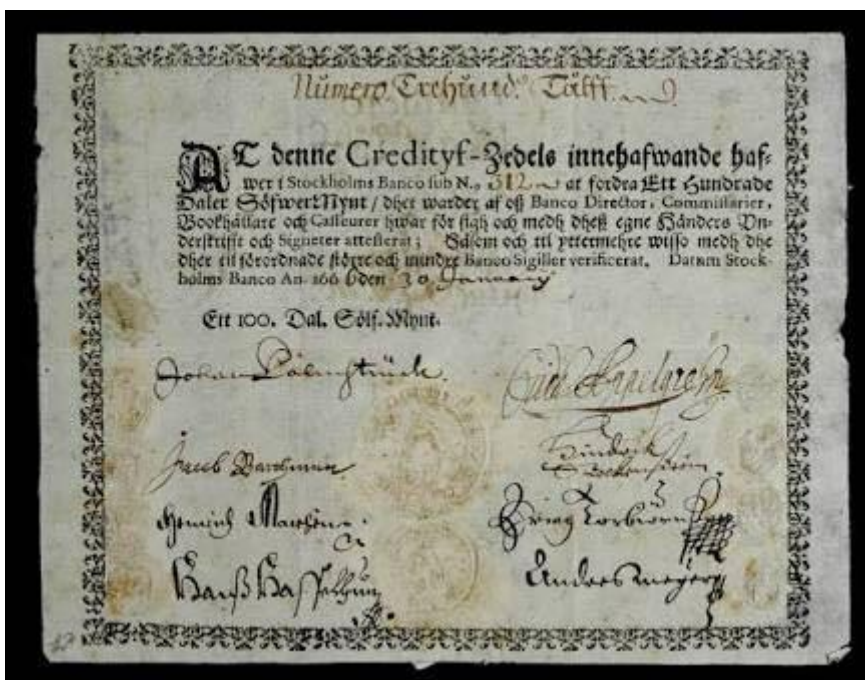 Numero. Trehund.o Tålff.
AT denne Credityf-Zedels innehafwande haf-
wer i Stockholms Banco sub N.o 312 at fordra Ett Hundrade
Daler SöfwerMynt / dhet warder af oß Banco Director, Commissarier,
Bookhållare och Casseurer hwar för sigh och medh dheß egne Händers Vn-
derskrifft och Signeter attesterat; Såsom och til yttermehre wisso medh dhe
dher til förordnade större och mindre Banco Sigiller verificerat. Datum Stock-
holms Banco An. 1666 den 30 January
Ett 100. Dal. Sölf. Mynt.
Johan Palmstruck.
Jacob
Hinrick
Heinrich
Anders Meijer